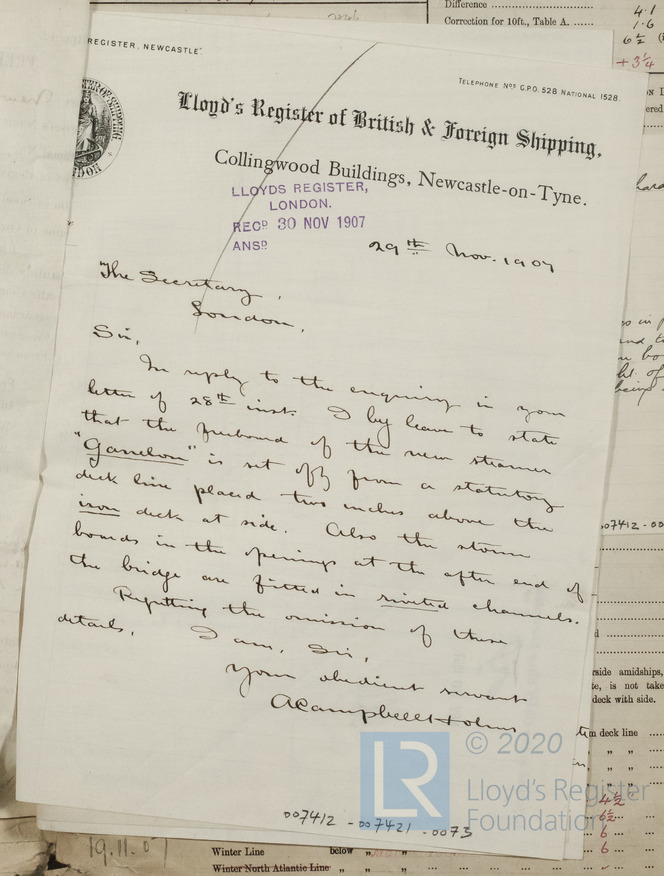 Difference
4·1
Correction for 10ft., Table A.
1·6
6½
+3¼
REGISTER, NEWCASTLE"
TELEPHONE Nos G.P.O. 528 NATIONAL 1528.
Lloyd's Register of British & Foreign Shipping,
Collingwood Buildings, Newcastle-on-Tyne.
LLOYDS REGISTER,
LONDON.
RECD 30 NOV 1907
ANSD
29th Nov. 1907
The Secretary,
London.
Sir,
In reply to the enquiry in your
letter of 28th inst. I beg leave to state
that the freeboard of the new steamer
"Ganelon" is set off from a statutory
deck line placed two inches above the
iron deck at side. Also the storm
boards in the openings at the after end of
the bridge are fitted in riveted channels.
Regretting the omission of these
details,
I am, Sir,
Your obedient servant
ACampbellHolms
007412 - 007421 - 0073
© 2020
LR
Lloyd's Register
Foundation
007412 - 00
rside amidships,
te, is not take
deck with side.
deck line
4½
6½
6
6
19.11.07
Winter Line below „ „
Winter North Atlantic Line „ „